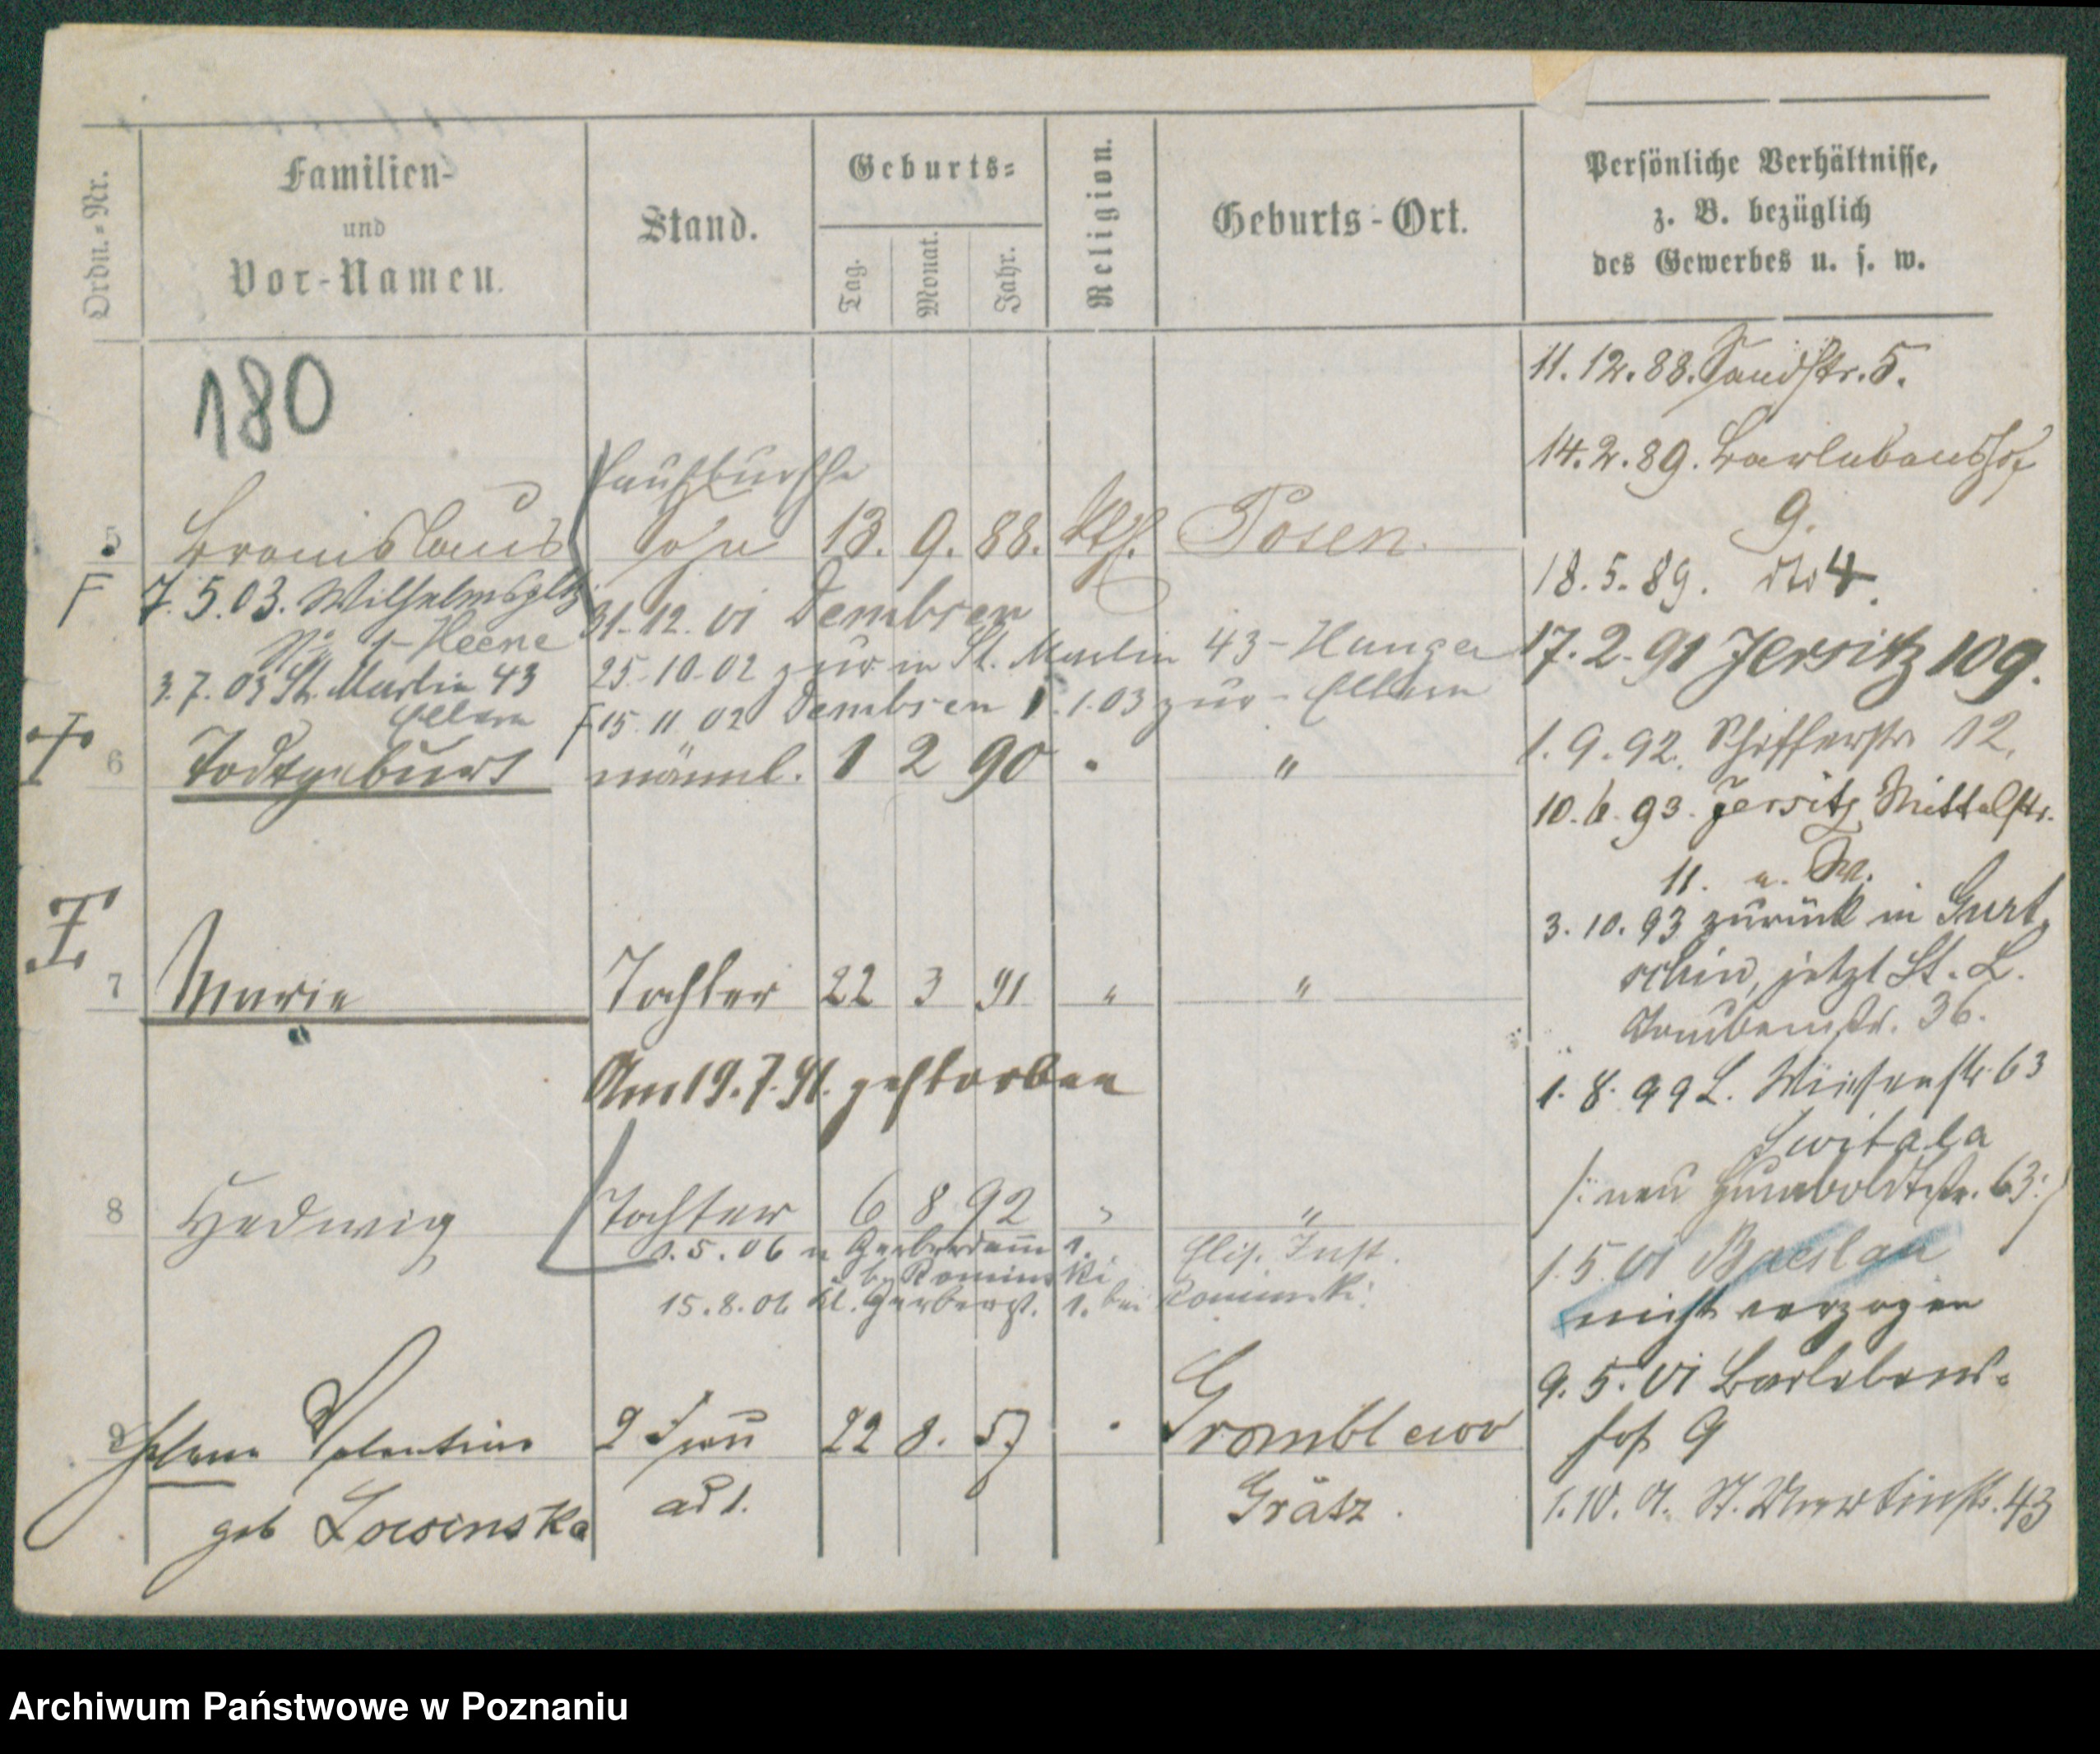 Ordn.-Nr.
Familien-
und
Vor-Namen.
Stand.
Geburts-
Tag.
Monat.
Jahr.
Religion.
Geburts-Ort.
Persönliche Verhältnisse,
z. B. bezüglich
des Gewerbes u. s. w.
180
Laufbursche
5 Bronislaus Sohn 13. 9. 88. kth. Posen.
F 7.5.03. Wilhelmspltz 31.12.01 Dembsen
No 1 - Heene 25.10.02 zur in St. Martin 43 - Hunger
3.7.03 St. Martin 43
Eltern F 15.11.02 Dembsen 1.1.03 zur - Eltern
6 Todtgeburt männl. 1 2 90 " "
7 Marie Tochter 22 3 91 " "
Am 19.7.91. gestorben
8 Hedwig Tochter 6 8 92 " "
1.5.06 n Gerberdamm 1. Elis. Inft.
b. Rominski
15.8.06 kl. Gerberst. 1. bei Rominski.
9 Helene Valentine 2 Frau 22 8. 57 " Gromblewo
geb Losinska ad 1. Grätz.
11.12.88. Sandstr. 5.
14.2.89. Barlebenshof
9.
18.5.89. dto 4.
17.2.91 Jersitz 109.
1.9.92. Schifferstr 12,
10.6.93. Jersitz Mittelstr.
11. a. W.
3.10.93 zurück in Gurt-
schin, jetzt St. L.
Taubenstr. 36.
1.8.99 L. Wiesenstr 63
Switala
/: neu Humboldtstr. 63:/
1.5.01 Breslau
nicht verzogen
9.5.01 Barlebens-
hof 9
1.10.01. St. Martinstr. 43
Archiwum Państwowe w Poznaniu